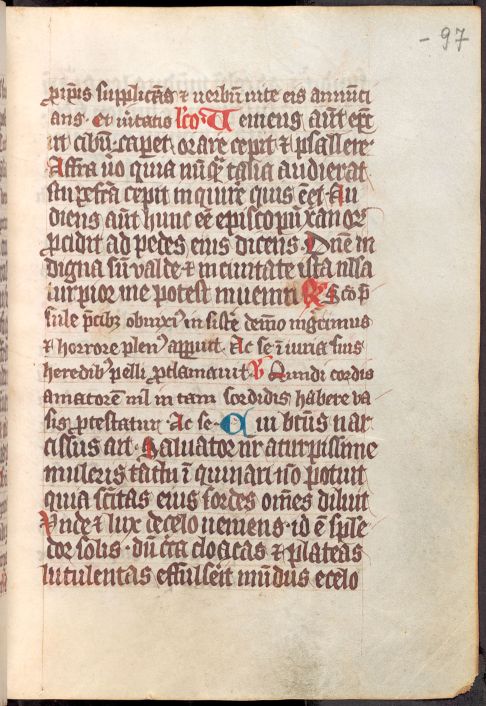 - 97
ꝓpiꝰ supplicās ⁊ uerbū uite eis annūci
ans. Et uitatio lc̄o Ueniens aūt ept
ut cibū caperet orare cepit ⁊ psallere.
Affra ūo quia nūq̄ talia audierat
stupefca cepit inquire quis eēt. Au
diens aūt hunc eē episcopū xanoꝝ
ꝓcidit ad pedes eius dicens. Dn̄e in
digna sū valde ⁊ in ciuitate ista nlla
turpior me potest inueniri R̄ Sc̄o p̄
sule p̄cibꝫ obnixiꝰ insiste demō nigerrimus
⁊ horrore plenꝰ apparuit. Ac se ī iuria suis
heredibꝰ pelli ꝓclamauit V̄ Mundi cordis
amatorem nil in tam sordidis habere va
sis ꝓtestatur. Ac se. Cui bt̄us nar
cissus ait. Saluator nr̄ a turpissime
mulieris tactu ī quinari nō potuit
quia sc̄itas eius sordes om̄es diluit
Vnde ⁊ lux de celo ueniens. id ē sple
dor solis. dū c̄ca cloacas ⁊ plateas
lutulentas effulserit mūdus e celo